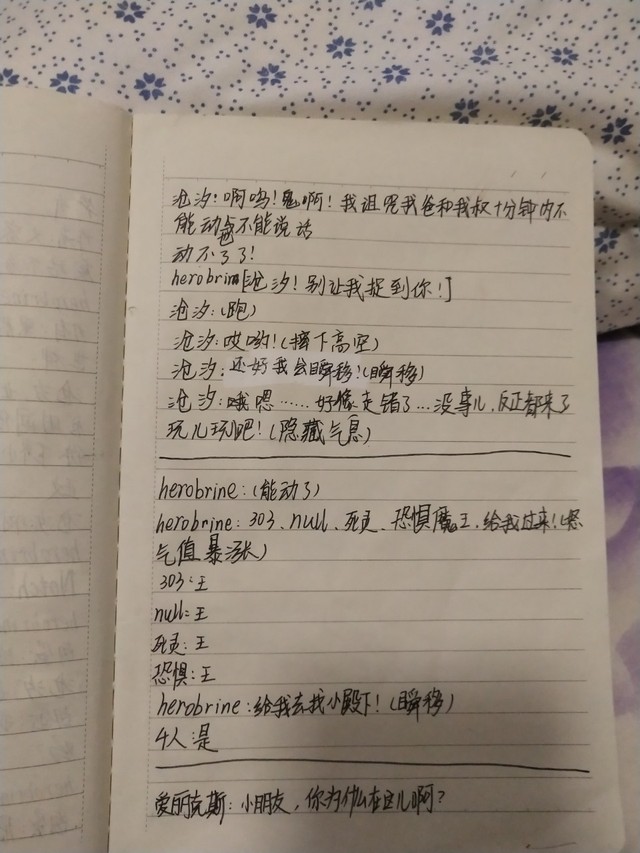 沧汐:啊呜!鬼啊!我诅咒我爸和我叔十分钟内不
能动也不能说话
动不了了!
herobrin[沧汐!别让我捉到你!]
沧汐:(跑)
沧汐:哎哟!(摔下高空)
沧汐:还好我会瞬移!(瞬移)
沧汐:哦嗯……好像走错了…没事儿,反正都来了
玩儿玩吧!(隐藏气息)
herobrine:(能动了)
herobrine:303、null、死灵、恐惧魔王,给我过来!(怒
气值暴涨)
303:王
null:王
死灵:王
恐惧:王
herobrine:给我去找小殿下!(瞬移)
4人:是
爱丽克斯:小朋友,你为什么在这儿啊?